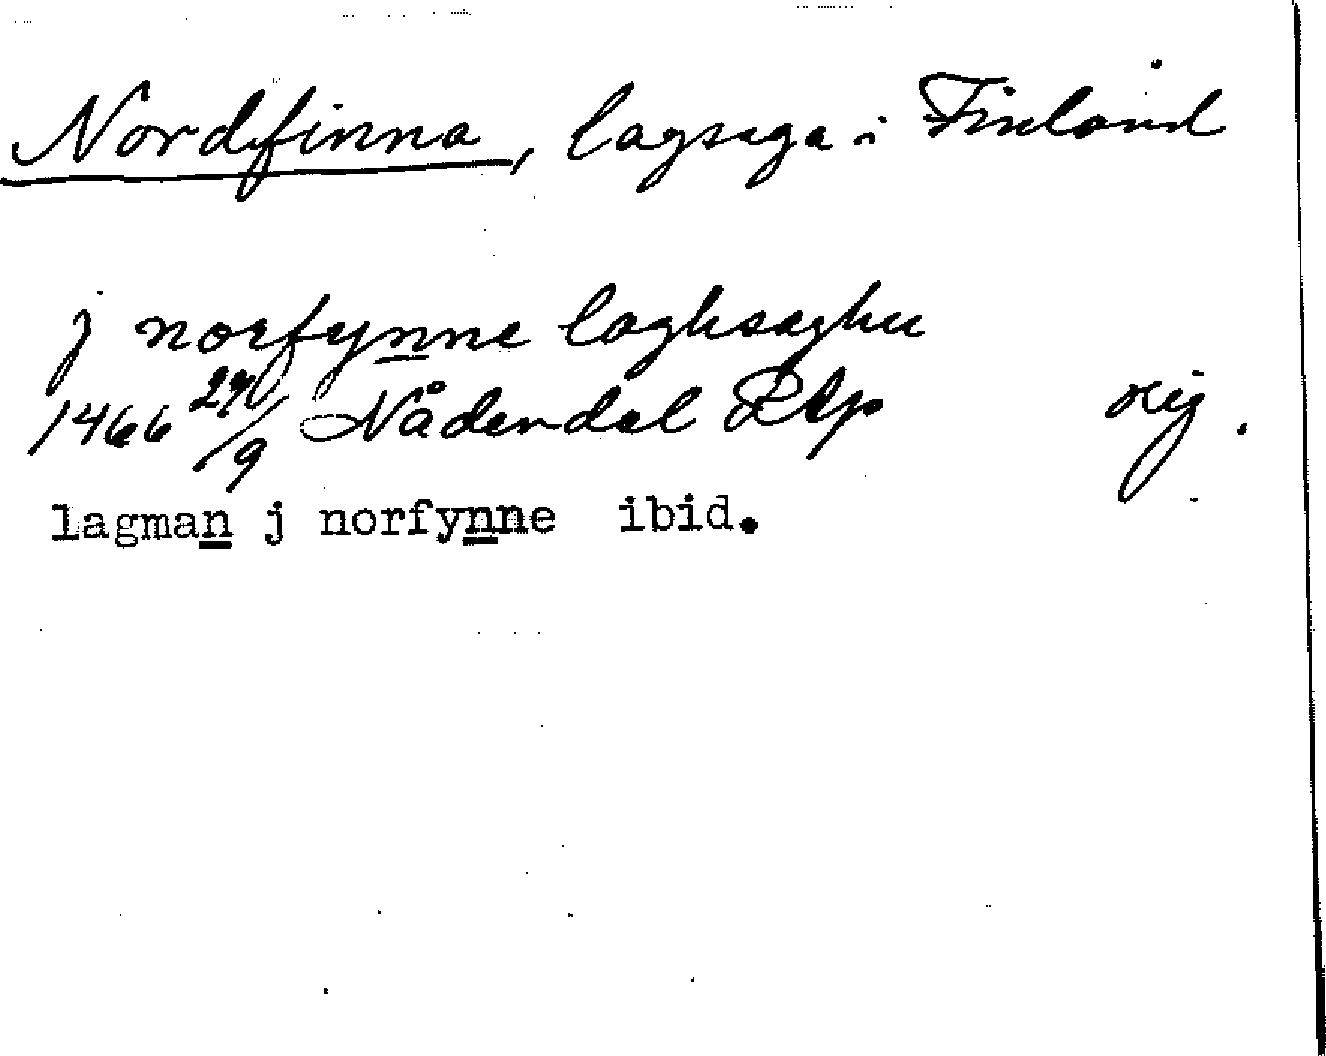 Nordfinna, lagsaga i Finland
j norfynne laghsaghu
1466 27/9 Nådendal RAp orig.
lagman j norfynne ibid.